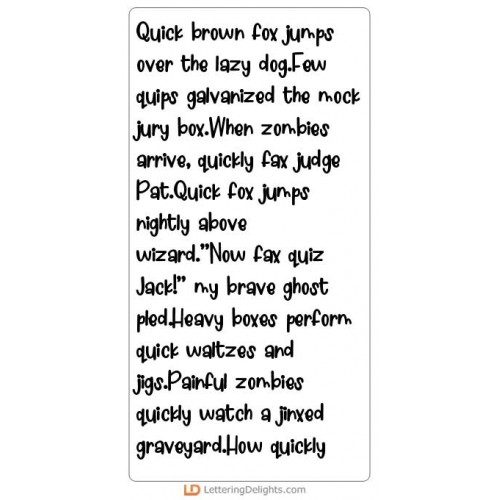 Quick brown fox jumps
over the lazy dog.Few
quips galvanized the mock
jury box.When zombies
arrive, quickly fax judge
Pat.Quick fox jumps
nightly above
wizard."Now fax quiz
Jack!" my brave ghost
pled.Heavy boxes perform
quick waltzes and
jigs.Painful zombies
quickly watch a jinxed
graveyard.How quickly
LD LetteringDelights.com